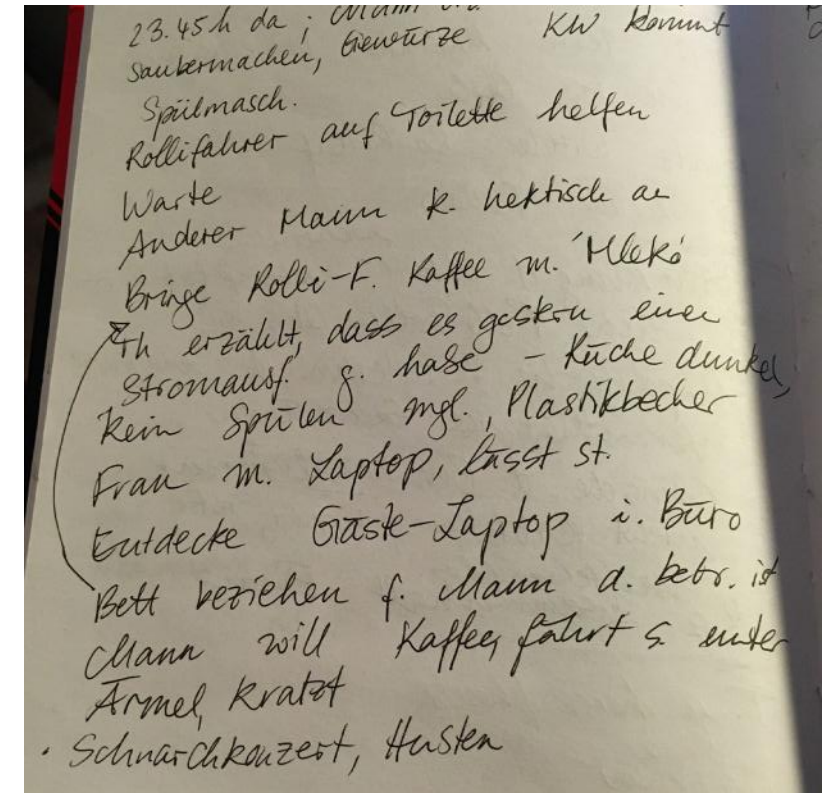 23.45h da; Mann
Saubermachen, Gewürze KW kommt
Spülmasch.
Rollifahrer auf Toilette helfen
Warte
Anderer Mann k. hektisch an
Bringe Rolli-F. Kaffee m. 'Mleko'
Th erzählt, dass es gestern einen
Stromausf. g. habe - Küche dunkel,
kein Spülen mgl., Plastikbecher
Frau m. Laptop, lässt st.
Entdecke Gäste-Laptop i. Büro
Bett beziehen f. Mann d. betr. ist
Mann will Kaffee, fährt s. unter
Ärmel, kratzt
· Schnarchkonzert, Husten